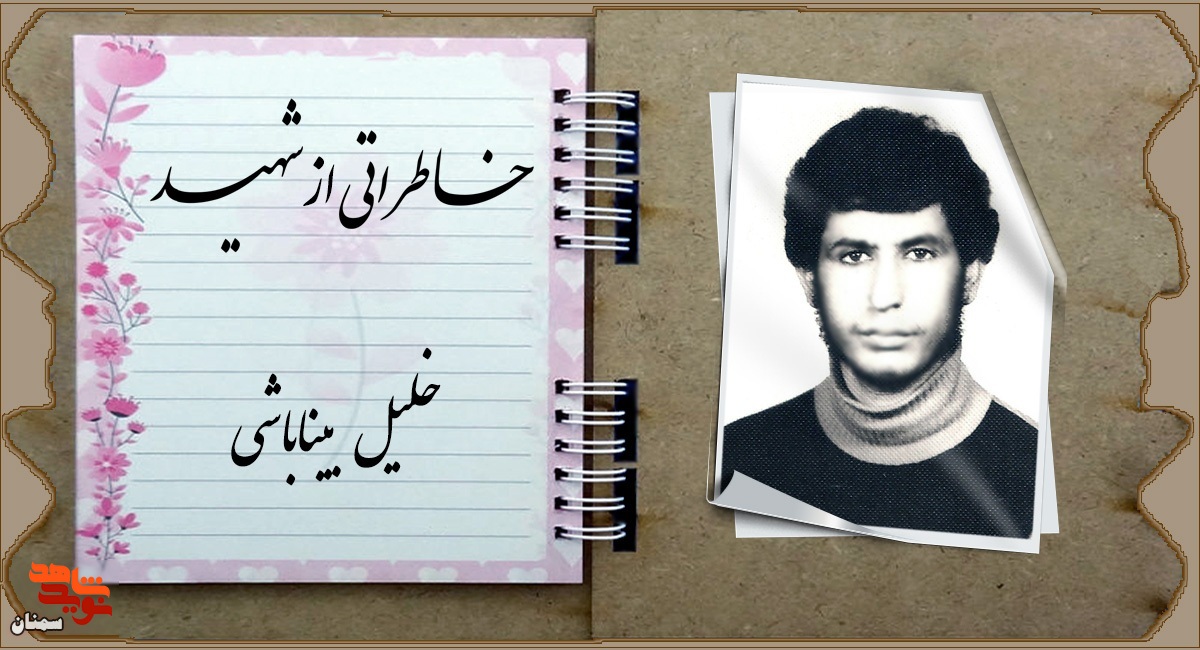 خاطراتی از شهید
خلیل بیناباشی
نوید شاهد
سمنان